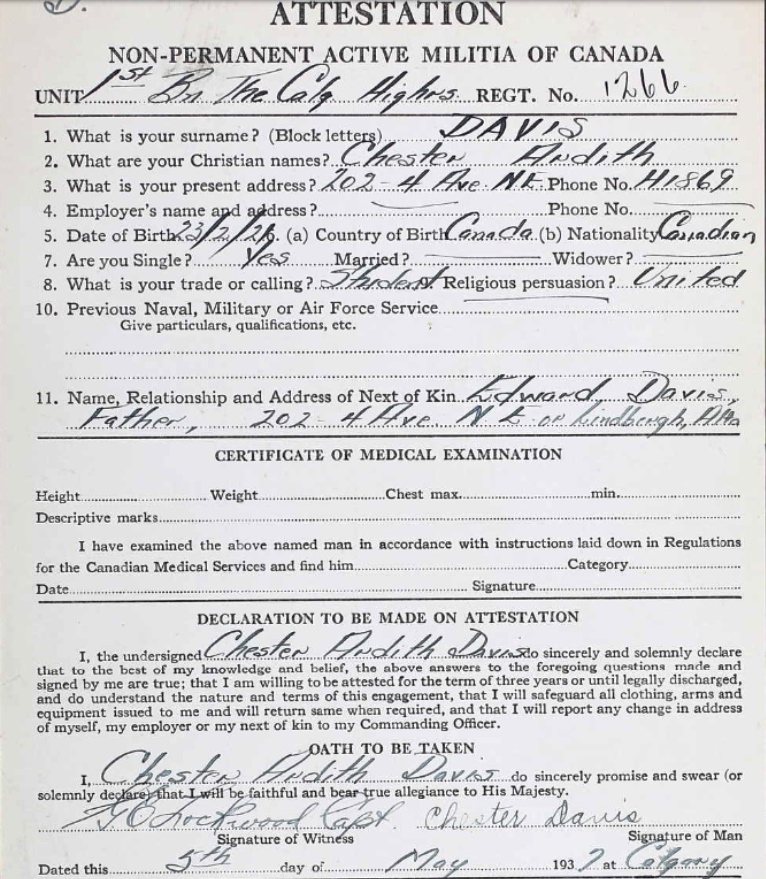 D.
ATTESTATION
NON-PERMANENT ACTIVE MILITIA OF CANADA
UNIT 1st Bn The Calg Highrs. REGT. No. 1266
1. What is your surname? (Block letters) DAVIS
2. What are your Christian names? Chester Audith
3. What is your present address? 202 - 4 Ave. NE. Phone No. H1869
4. Employer's name and address? Phone No.
5. Date of Birth 23/2/ (a) Country of Birth Canada (b) Nationality Canadian
7. Are you Single? Yes Married? Widower?
8. What is your trade or calling? Student Religious persuasion? United
10. Previous Naval, Military or Air Force Service
Give particulars, qualifications, etc.
11. Name, Relationship and Address of Next of Kin Edward Davis,
Father, 202 - 4 Ave. NE or Lindbergh, Alta
CERTIFICATE OF MEDICAL EXAMINATION
Height Weight Chest max. min.
Descriptive marks
I have examined the above named man in accordance with instructions laid down in Regulations
for the Canadian Medical Services and find him Category
Date Signature
DECLARATION TO BE MADE ON ATTESTATION
I, the undersigned Chester Audith Davis do sincerely and solemnly declare
that to the best of my knowledge and belief, the above answers to the foregoing questions made and
signed by me are true; that I am willing to be attested for the term of three years or until legally discharged,
and do understand the nature and terms of this engagement, that I will safeguard all clothing, arms and
equipment issued to me and will return same when required, and that I will report any change in address
of myself, my employer or my next of kin to my Commanding Officer.
OATH TO BE TAKEN
I, Chester Audith Davis do sincerely promise and swear (or
solemnly declare) that I will be faithful and bear true allegiance to His Majesty.
Lockwood Capt. Chester Davis
Signature of Witness Signature of Man
Dated this 5th day of May 1937 at Calgary